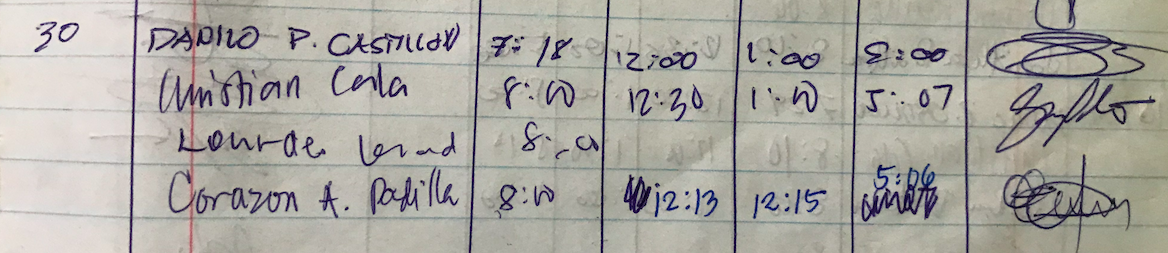 30 DANILO P. CASTILLON 7:18 12:00 1:00 5:00
Christian Cala 8:00 12:30 1:00 5:07
Lourdes 8:00
Corazon A. Padilla 8:00 12:13 12:15 5:06